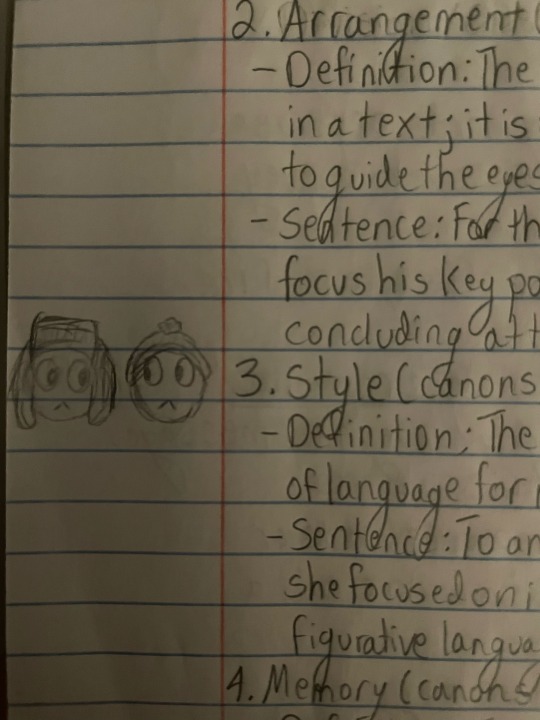 2. Arrangement (
- Definition: The
in a text; it is
to guide the eyes
- Sentence: For th
focus his key po
concluding att
3. Style (canons
- Definition: The
of language for
- Sentence: To an
she focused on i
figurative langua
4. Memory (canons